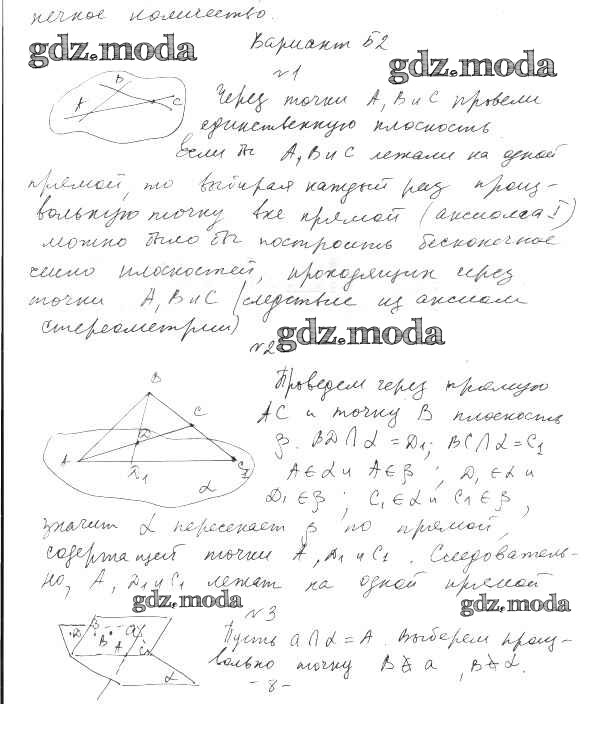 печное количество.
gdz.moda
Вариант Б2
gdz.moda
№1
B
A
C
Через точки A, B и C провели
единственную плоскость
Если бы A, B и C лежали на одной
прямой, то выбирая каждый раз произ-
вольную точку вне прямой (аксиома I)
можно было бы построить бесконечное
число плоскостей, проходящих через
точки A, B и C (следствие из аксиом
стереометрии)
gdz.moda
№2
B
C
A
D1
C1
α
Проведем через прямую
AC и точку B плоскость
β. BD∩α = D1; BC∩α = C1
A∈α и A∈β ; D1∈α и
D1∈β ; C1∈α и C1∈β ,
значит α пересекает β по прямой,
содержащей точки A, D1 и C1. Следователь-
но, A, D1 и C1 лежат на одной прямой
gdz.moda
gdz.moda
№3
B
a
A
α
Пусть a∩α = A. Выберем произ-
вольно точку B∉a , B∉α.
- 8 -